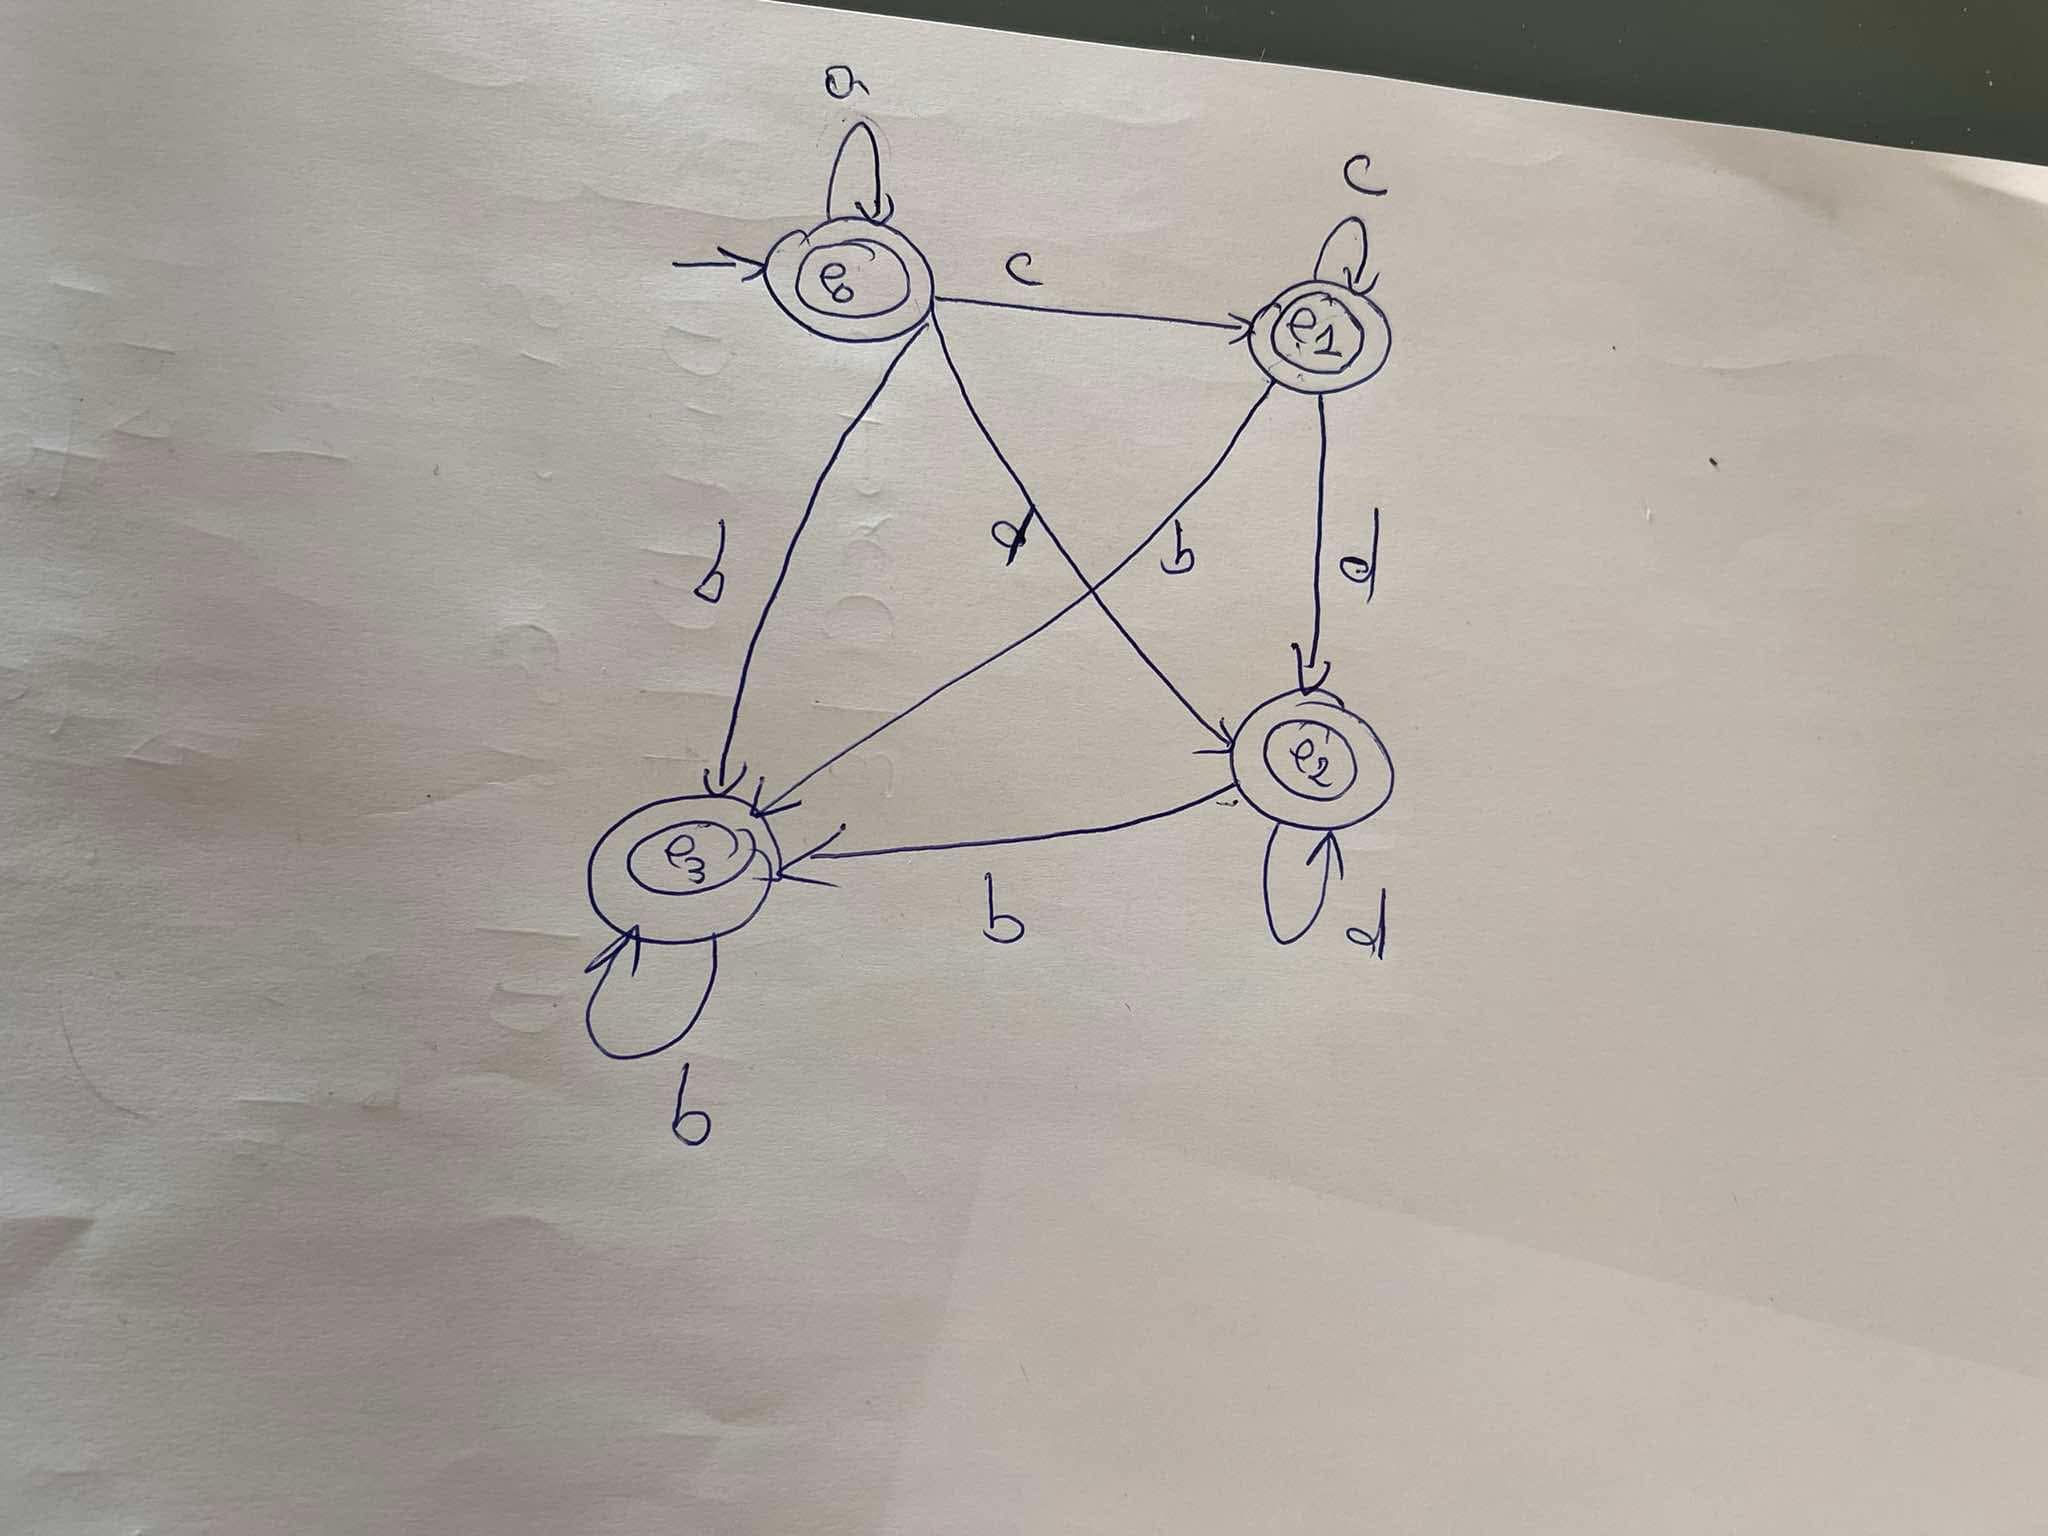 a
c
e0
c
e1
b
d
b
d
e2
e3
b
d
b